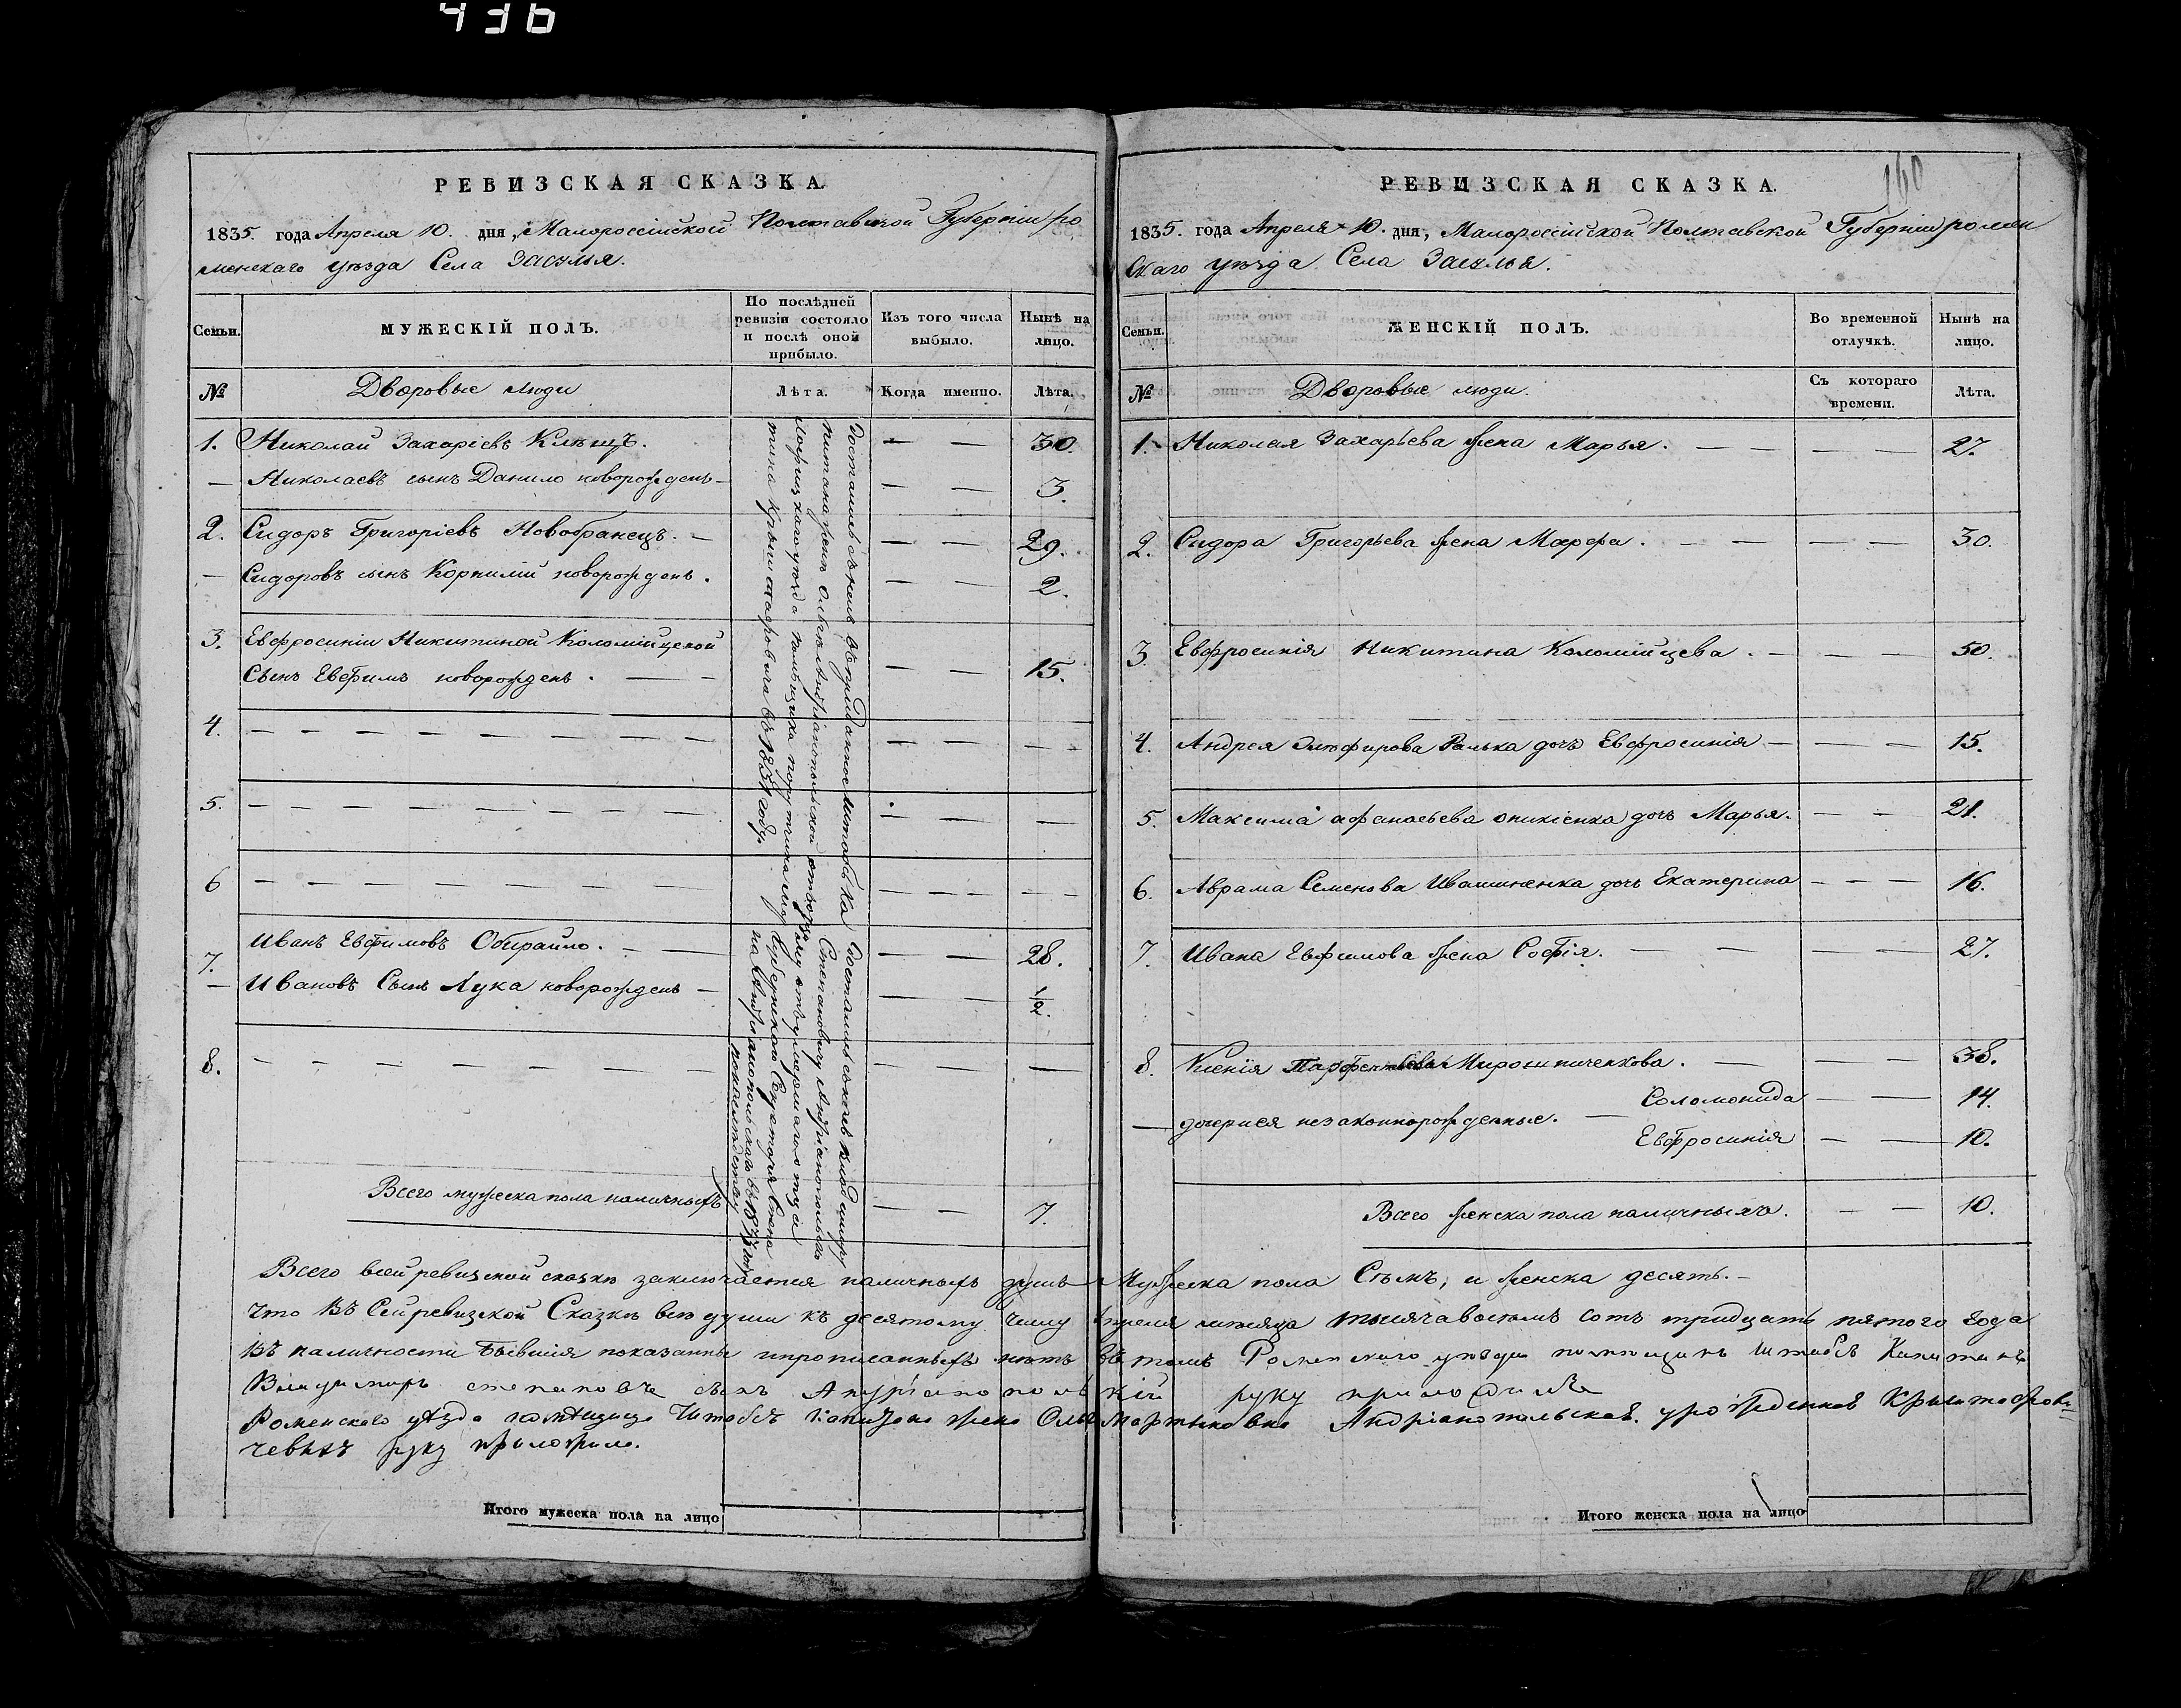 436
РЕВИЗСКАЯ СКАЗКА.
1835. года Апреля 10. дня, Малороссійской Полтавской Губерніи ро
менскаго уезда Села Засулья.
Семьи.
МУЖЕСКІЙ ПОЛЪ.
По послѣдней ревизіи состояло и послѣ оной прибыло.
Изъ того числа выбыло.
Нынѣ на лицо.
№
Дворовые люди
Лѣта.
Когда именно.
Лѣта.
1. Николай Захаріевъ Клѣщъ. — — 30.
— Николаевъ сынъ Данило новорожденъ — — — 3.
2. Сидоръ Григоріевъ Новобранецъ. — — — 29.
— Сидоровъ сынъ Корнилій новорожденъ. — — 2.
3. Евфросиніи Никитиной Коломійцевой
Сынъ Евфимъ новорожденъ. — — — — 15.
4. — — — — — — — —
5. — — — — — — — —
6 — — — — — — — —
7. Иванъ Евфимовъ Обирайло. — — — — 28.
— Ивановъ Сынъ Лука новорожденъ — — — 1/2.
8. — — — — — — — —
Всего мужеска пола наличныхъ — — 7.
Достались въ приданное Штабъ Ка
питана женѣ Ольгѣ Андріанопольской отъ
Лохвицкаго уезда помѣщика
Криштофовича въ 1831 году.
Степановичу Андріанопольскому отъ умершаго отца
Губернскаго Секретаря Степана
Андріанопольскаго
РЕВИЗСКАЯ СКАЗКА.
160
1835. года Апреля 10. дня, Малороссійской Полтавской Губерніи ромен
скаго уезда Села Засулья.
Семьи.
ЖЕНСКІЙ ПОЛЪ.
Во временной отлучкѣ.
Нынѣ на лицо.
№
Дворовые люди.
Съ котораго времени.
Лѣта.
1. Николая Захарьева жена Марья. — — — — 27.
2. Сидора Григорьева жена Марфа. — — — — 30.
3. Евфросинія Никитина Коломійцева. — — — 50.
4. Андрея Палька дочь Евфросинія — — — 15.
5. Максима афанасьева дочь Марья. — — 21.
6. Аврама Семенова Ивашненка дочь Екатерина — — — 16.
7. Ивана Евфимова жена Софія. — — — — 27.
8. Ксенія Парфентіева Мирошниченкова. — — — 38.
Соломонида — — 14.
— дочери ея незаконнорожденные. —
Евфросинія — — 10.
Всего женска пола наличныхъ. — — 10.
Всего всей ревизской сказкѣ заключается наличныхъ душъ Мужеска пола Сѣмъ, и женска десять. —
что въ Сей ревизской Сказкѣ все души къ десятому числу Апреля месяца тысяча восемъ сотъ тридцать пятого года
въ наличности бывшія показаны и прописанныхъ нетъ въ томъ Роменского уезда помещикъ Штабсъ Капитанъ
Владимиръ степановъ сынъ Андріанопольскій руку приложилъ
Роменского уезда помещица Штабсъ капитана жена Ольга Мартыновна Андріанопольская. урожденная Криштофови=
чевна руку приложила.
Итого мужеска пола на лицо
Итого женска пола на лицо